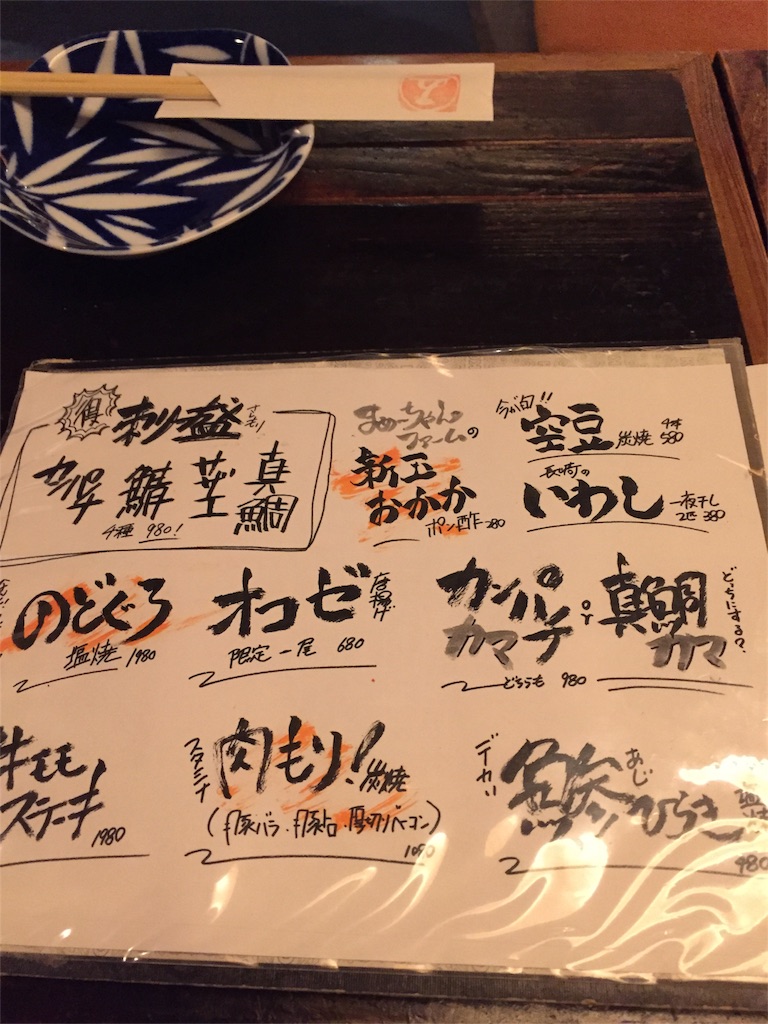 得 刺り盛
カンパチ 鯖 サザエ 真鯛
4種 980!
まめちゃん
ファームの
新玉
おかか
ポン酢 280
今が旬!!
空豆 炭焼 4本 580
長崎の
いわし 一夜干し 2匹 380
のどぐろ
塩焼 1980
オコゼ 唐揚げ
限定一尾 680
カンパチ カマ or 真鯛 カマ どっちにする?
どちらも 980
牛モモ
ステーキ
1980
スタミナ 肉もり! 炭焼
(豚バラ・豚トロ・厚切りベーコン)
デカい 鯵 あじ ひらき
980